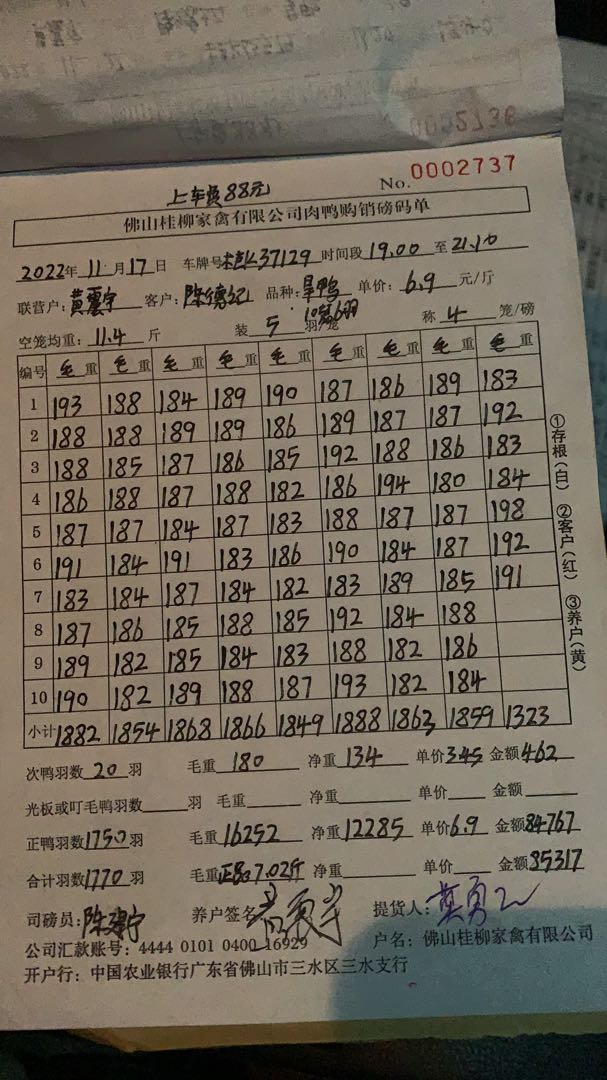 上车费88元
No. 0002737
佛山桂柳家禽有限公司肉鸭购销磅码单
2022年 11月17日 车牌号 37129 时间段 19.00 至 21.10
联营户：黄震宇 客户：陈德纪 品种：旱鸭 单价：6.9 元/斤
空笼均重：11.4 斤 装 5 羽/笼 称 4 笼/磅
编号 毛重 毛重 毛重 毛重 毛重 毛重 毛重 毛重 毛重
1 193 188 184 189 190 187 186 189 183
2 188 188 189 189 186 189 187 187 192
3 188 185 187 186 185 192 188 186 183
4 186 188 187 188 182 186 194 180 184
5 187 187 184 187 183 188 187 187 198
6 191 184 191 183 186 190 184 187 192
7 183 184 187 184 182 183 189 185 191
8 187 186 185 188 185 192 184 188
9 189 182 185 184 183 188 182 186
10 190 182 189 188 187 193 182 184
小计 1882 1854 1868 1866 1849 1888 1863 1859 1323
①存根(白) ②客户(红) ③养户(黄)
次鸭羽数 20 羽 毛重 180 净重 134 单价 3.45 金额 462
光板或叮毛鸭羽数 羽 毛重 净重 单价 金额
正鸭羽数 1750 羽 毛重 16252 净重 12285 单价 6.9 金额 84767
合计羽数 1770 羽 毛重 正品7.02斤 净重 单价 金额 85317
司磅员：陈建宁 养户签名 提货人：
公司汇款账号：4444 0101 0400 16929 户名：佛山桂柳家禽有限公司
开户行：中国农业银行广东省佛山市三水区三水支行